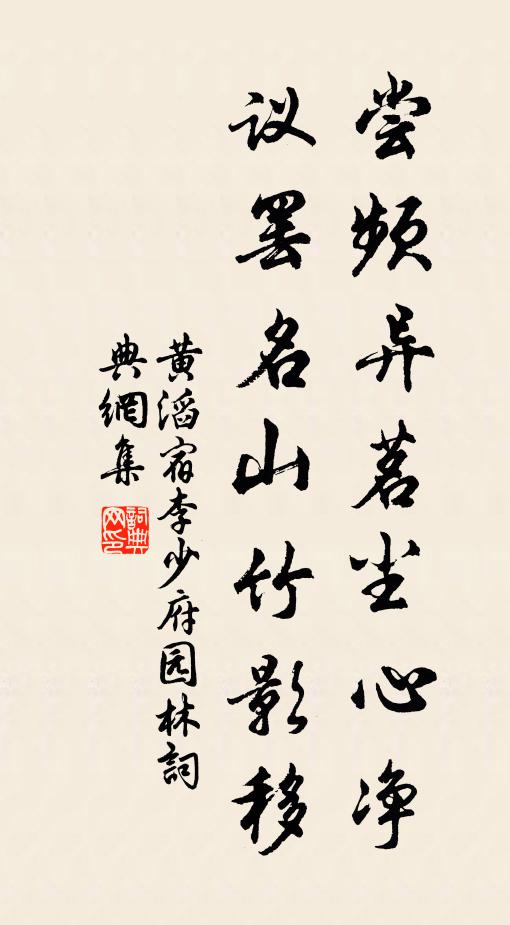 尝频异茗尘心净
议罢名山竹影移
黄滔宿李少府园林詞
典網集
詞典
网印